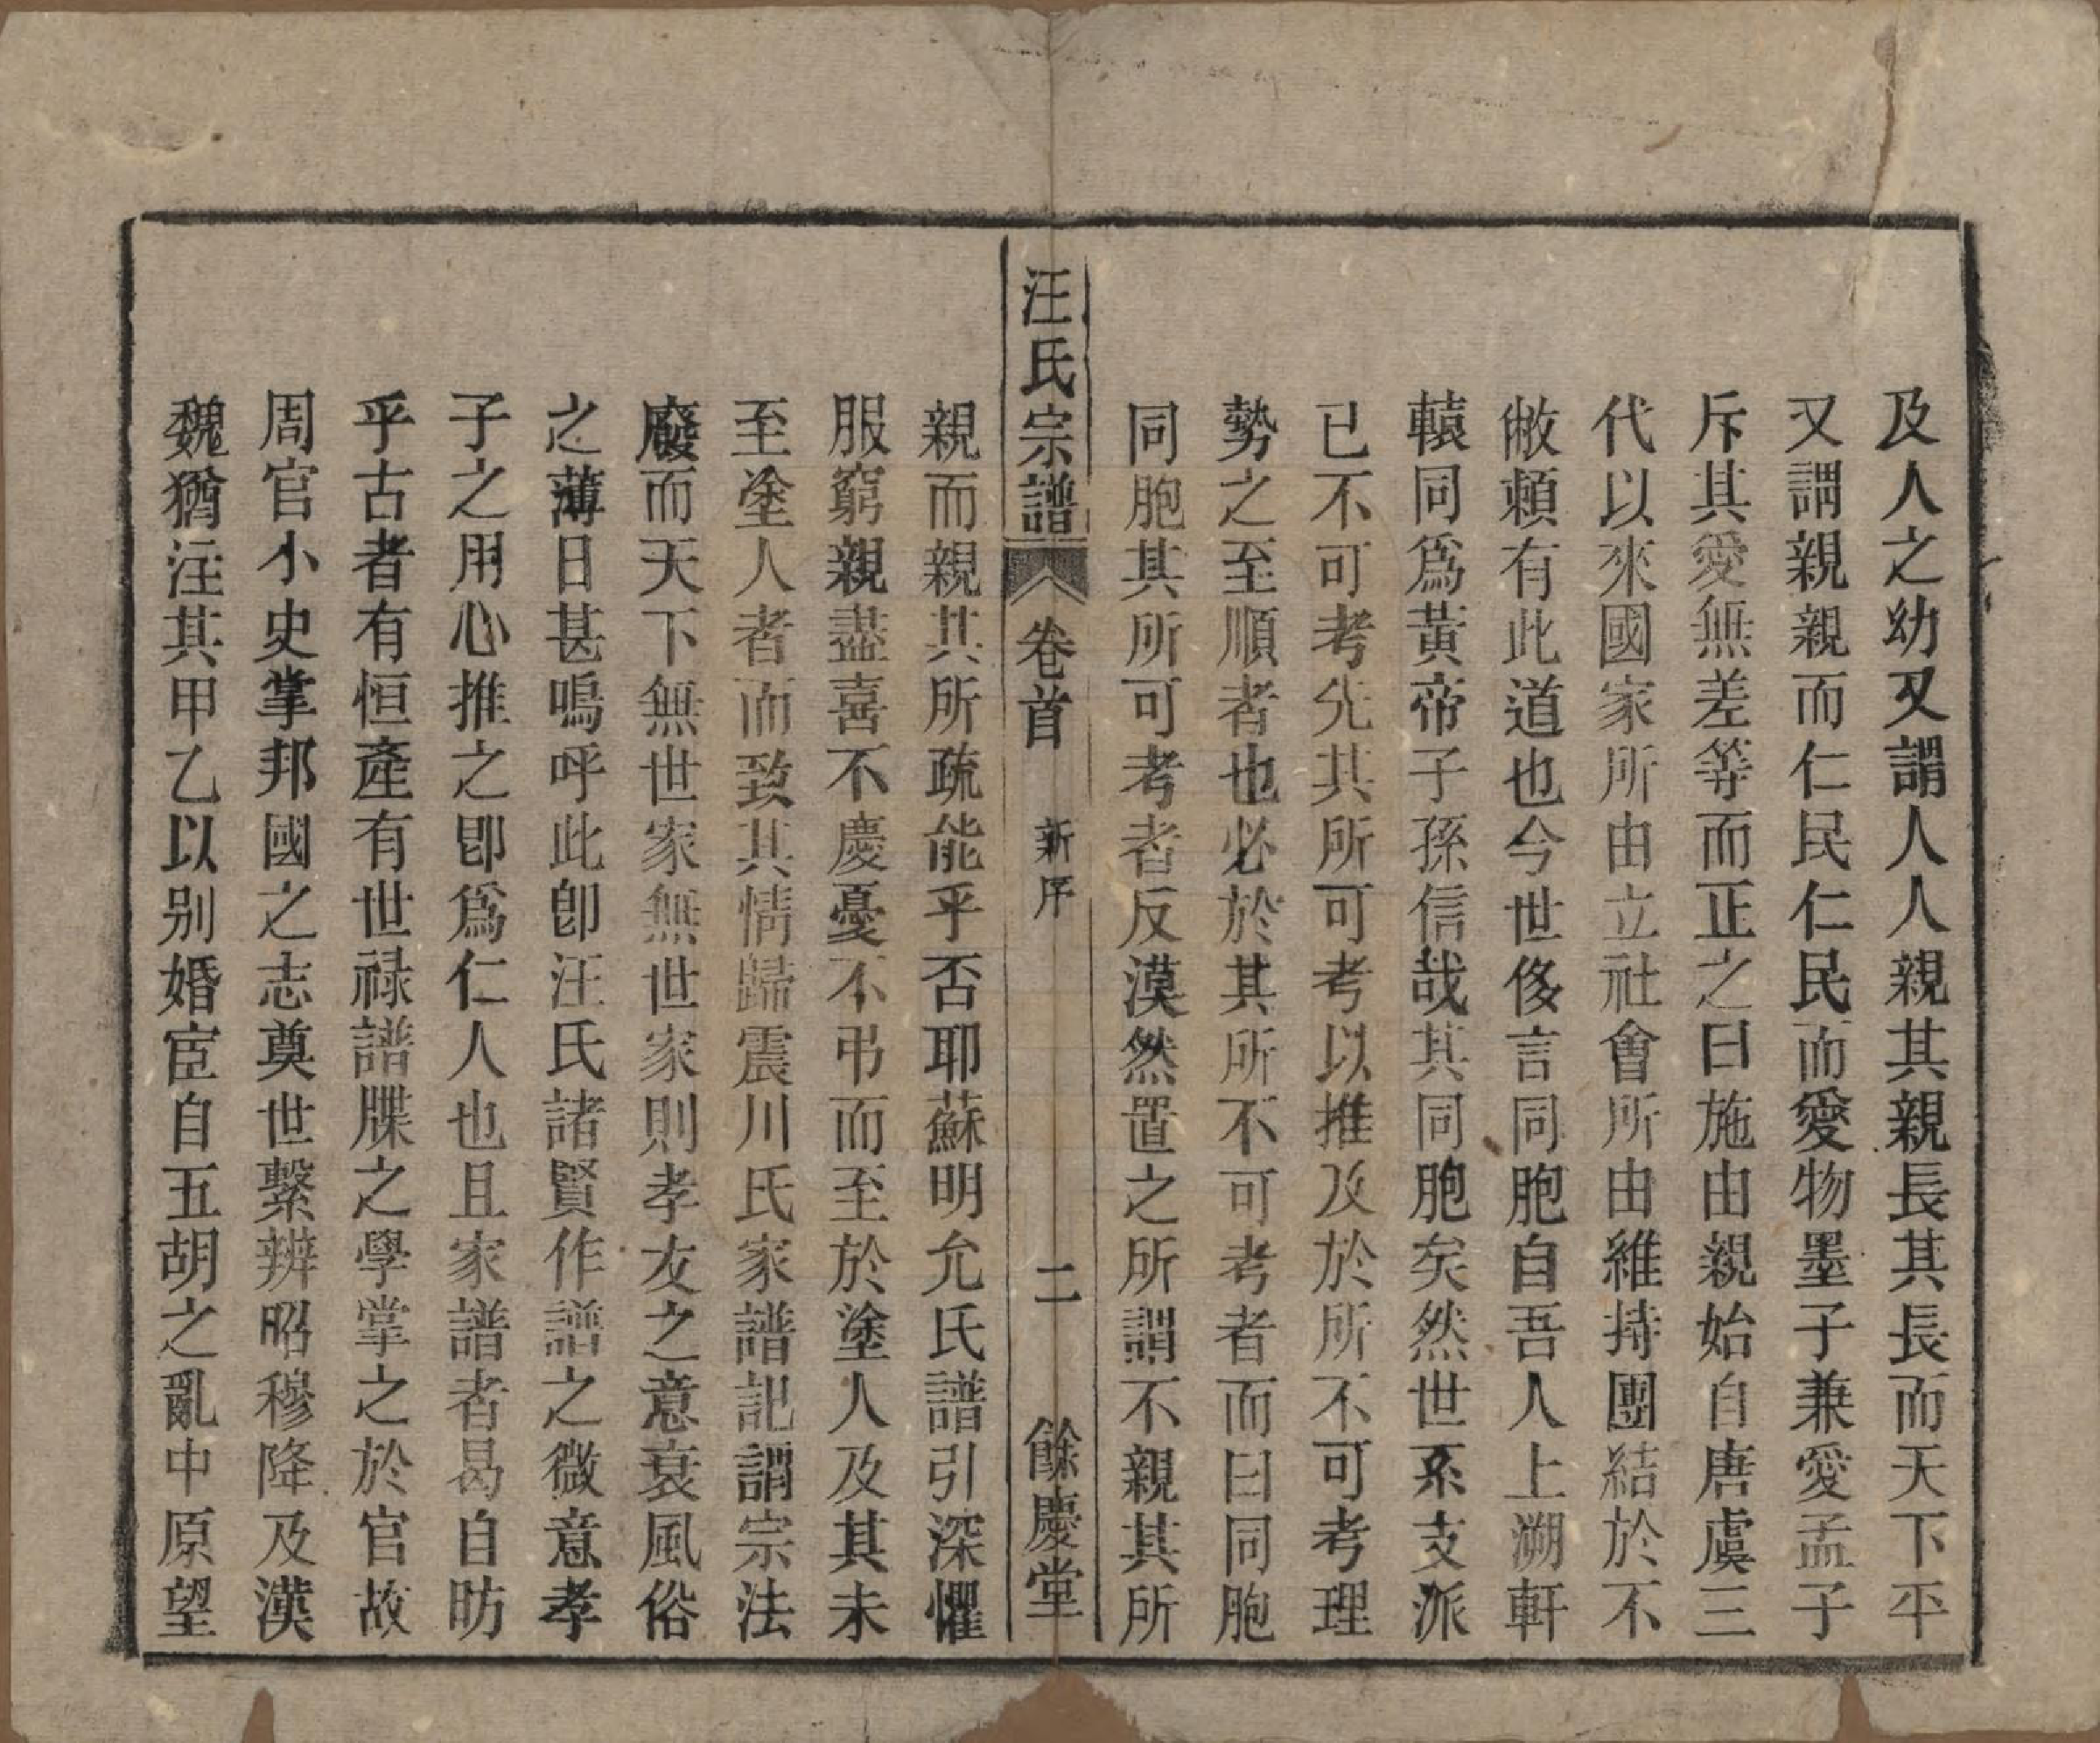 及人之幼又謂人人親其親長其長而天下平
又謂親親而仁民仁民而愛物墨子兼愛孟子
斥其愛無差等而正之曰施由親始自唐虞三
代以來國家所由立社會所由維持團結於不
敝賴有此道也今世侈言同胞自吾人上溯軒
轅同爲黃帝子孫信哉其同胞矣然世系支派
已不可考先其所可考以推及於所不可考理
勢之至順者也必於其所不可考者而曰同胞
同胞其所可考者反漠然置之所謂不親其所
汪氏宗譜 卷首 新序 二 餘慶堂
親而親其所疏能乎否耶蘇明允氏譜引深懼
服窮親盡喜不慶憂不弔而至於塗人及其未
至塗人者而致其情歸震川氏家譜記謂宗法
廢而天下無世家無世家則孝友之意衰風俗
之薄日甚嗚呼此卽汪氏諸賢作譜之微意孝
子之用心推之卽爲仁人也且家譜者曷自昉
乎古者有恒產有世祿譜牒之學掌之於官故
周官小史掌邦國之志奠世繫辨昭穆降及漢
魏猶注其甲乙以別婚宦自五胡之亂中原望